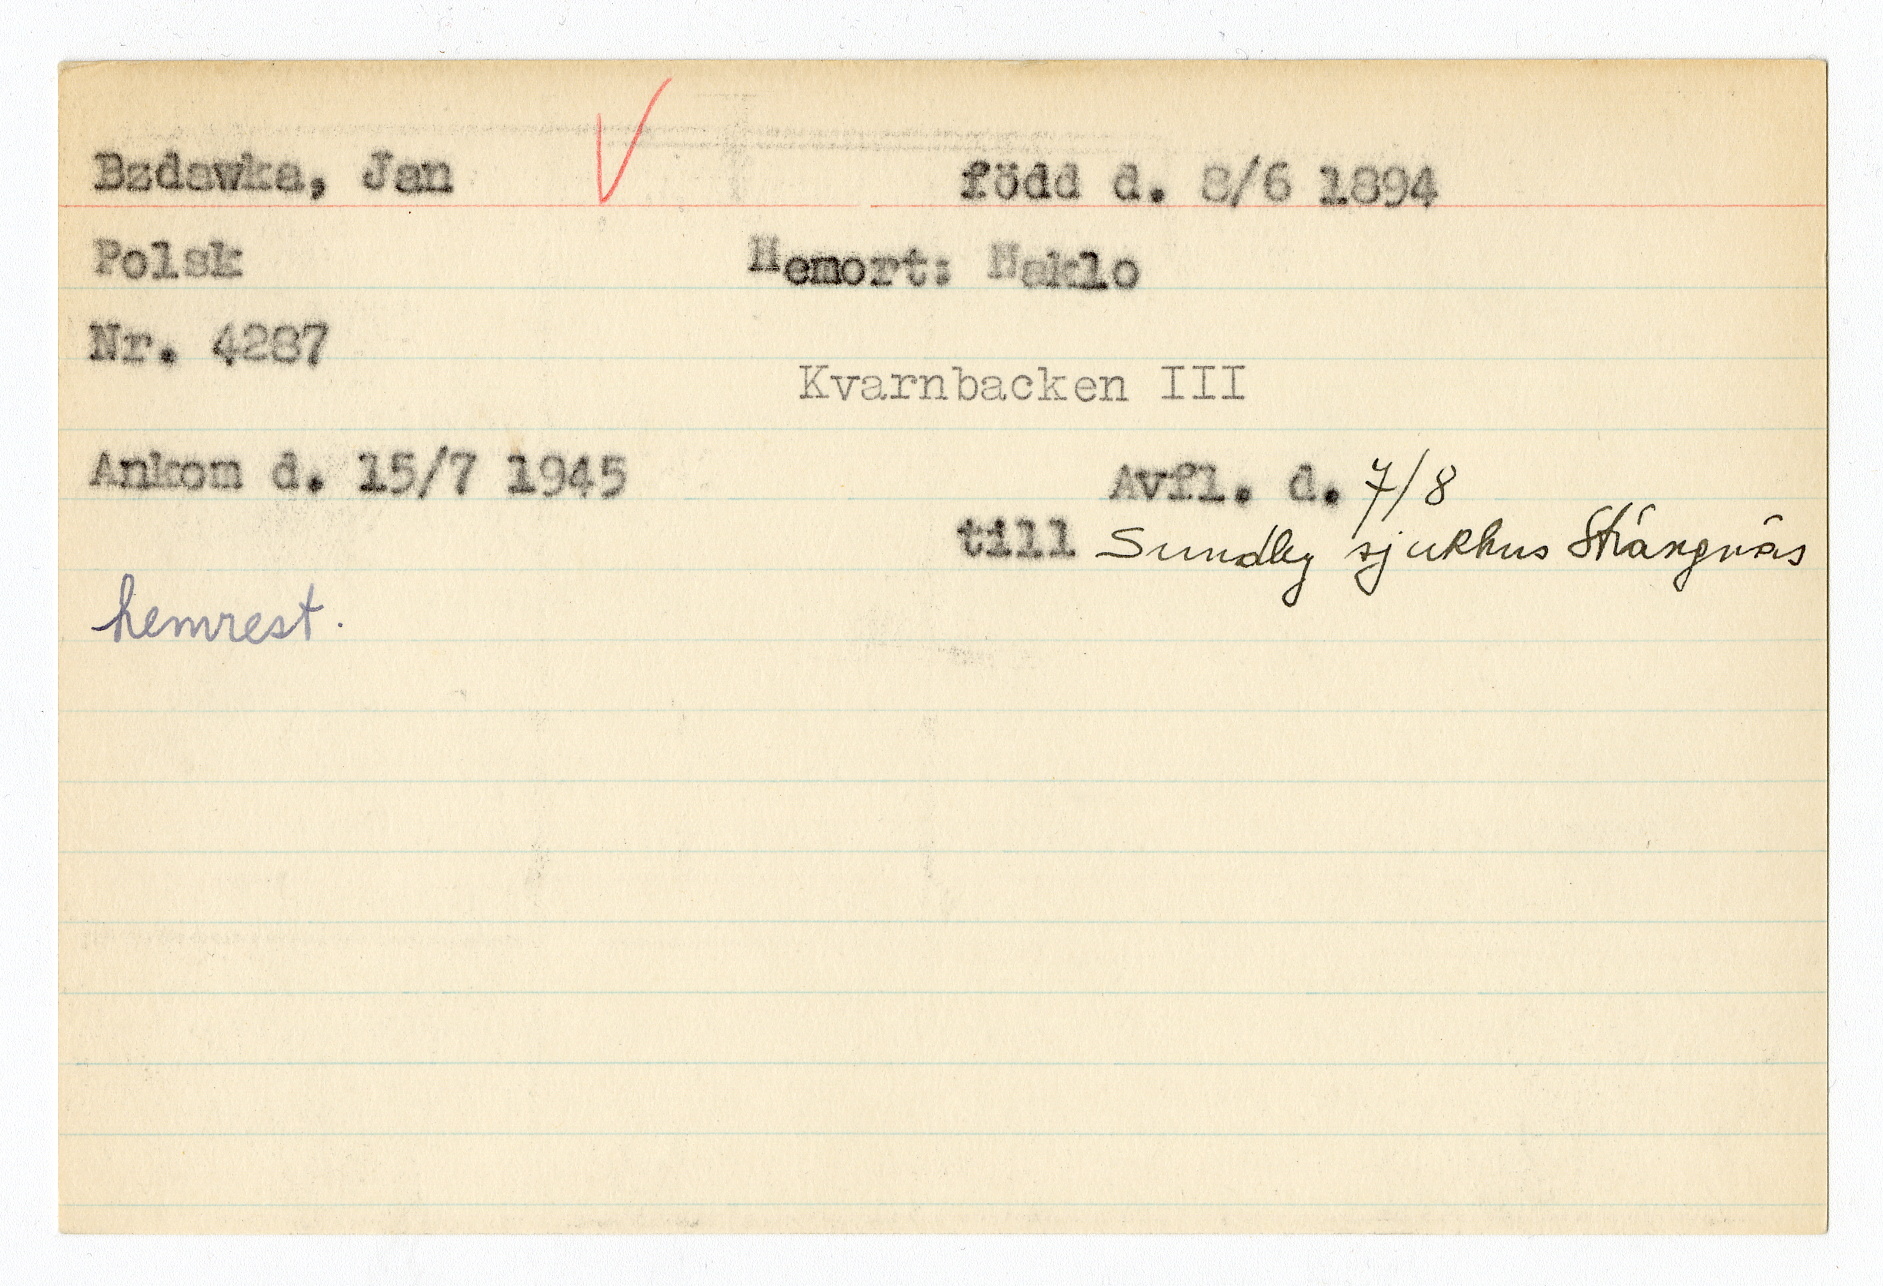 Bzdawka, Jan född d. 8/6 1894
Polsk Hemort: Naklo
Nr. 4287
Kvarnbacken III
Ankom d. 15/7 1945 Avfl. d. 7/8
till Sundby sjukhus Strängnäs
hemrest.